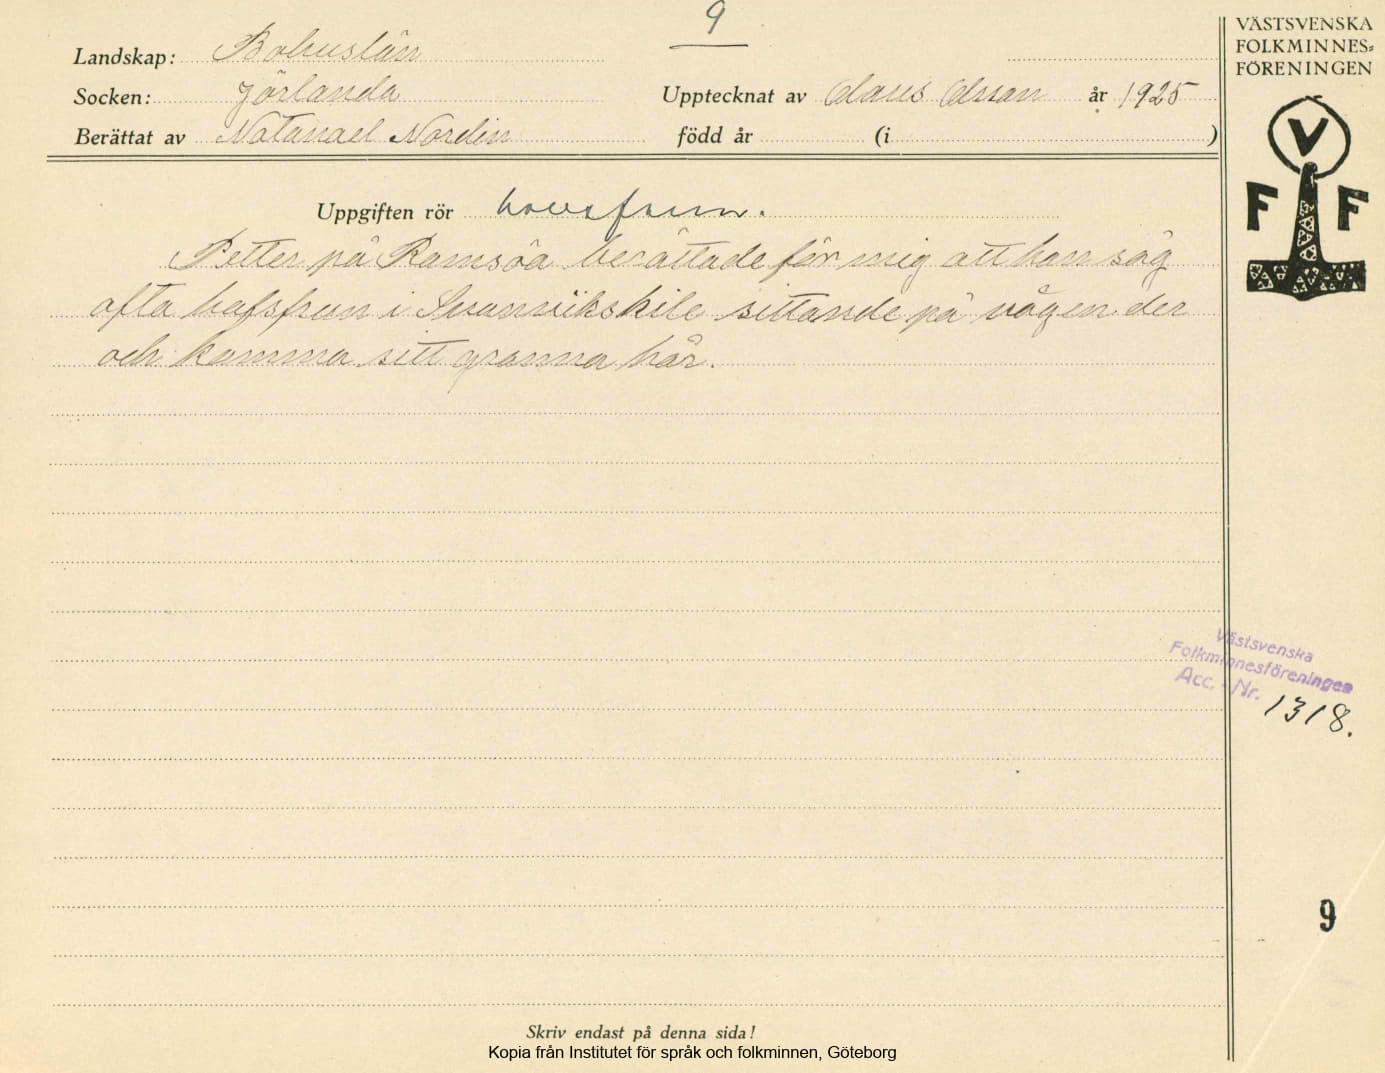 9
Landskap: Bohuslän
Socken: Jörlanda
Upptecknat av Claus Olsson år 1925
Berättat av Natanael Nordin född år (i )
VÄSTSVENSKA
FOLKMINNES=
FÖRENINGEN
V
F F
Uppgiften rör havsfrun.
Petter på Ramsöa berättade för mig att han såg
ofta hafsfrun i Svanvikskile sittande på vågen der
och kamma sitt granna hår.
Västsvenska
Folkminnesföreningen
Acc. Nr. 1318.
9
Skriv endast på denna sida!
Kopia från Institutet för språk och folkminnen, Göteborg